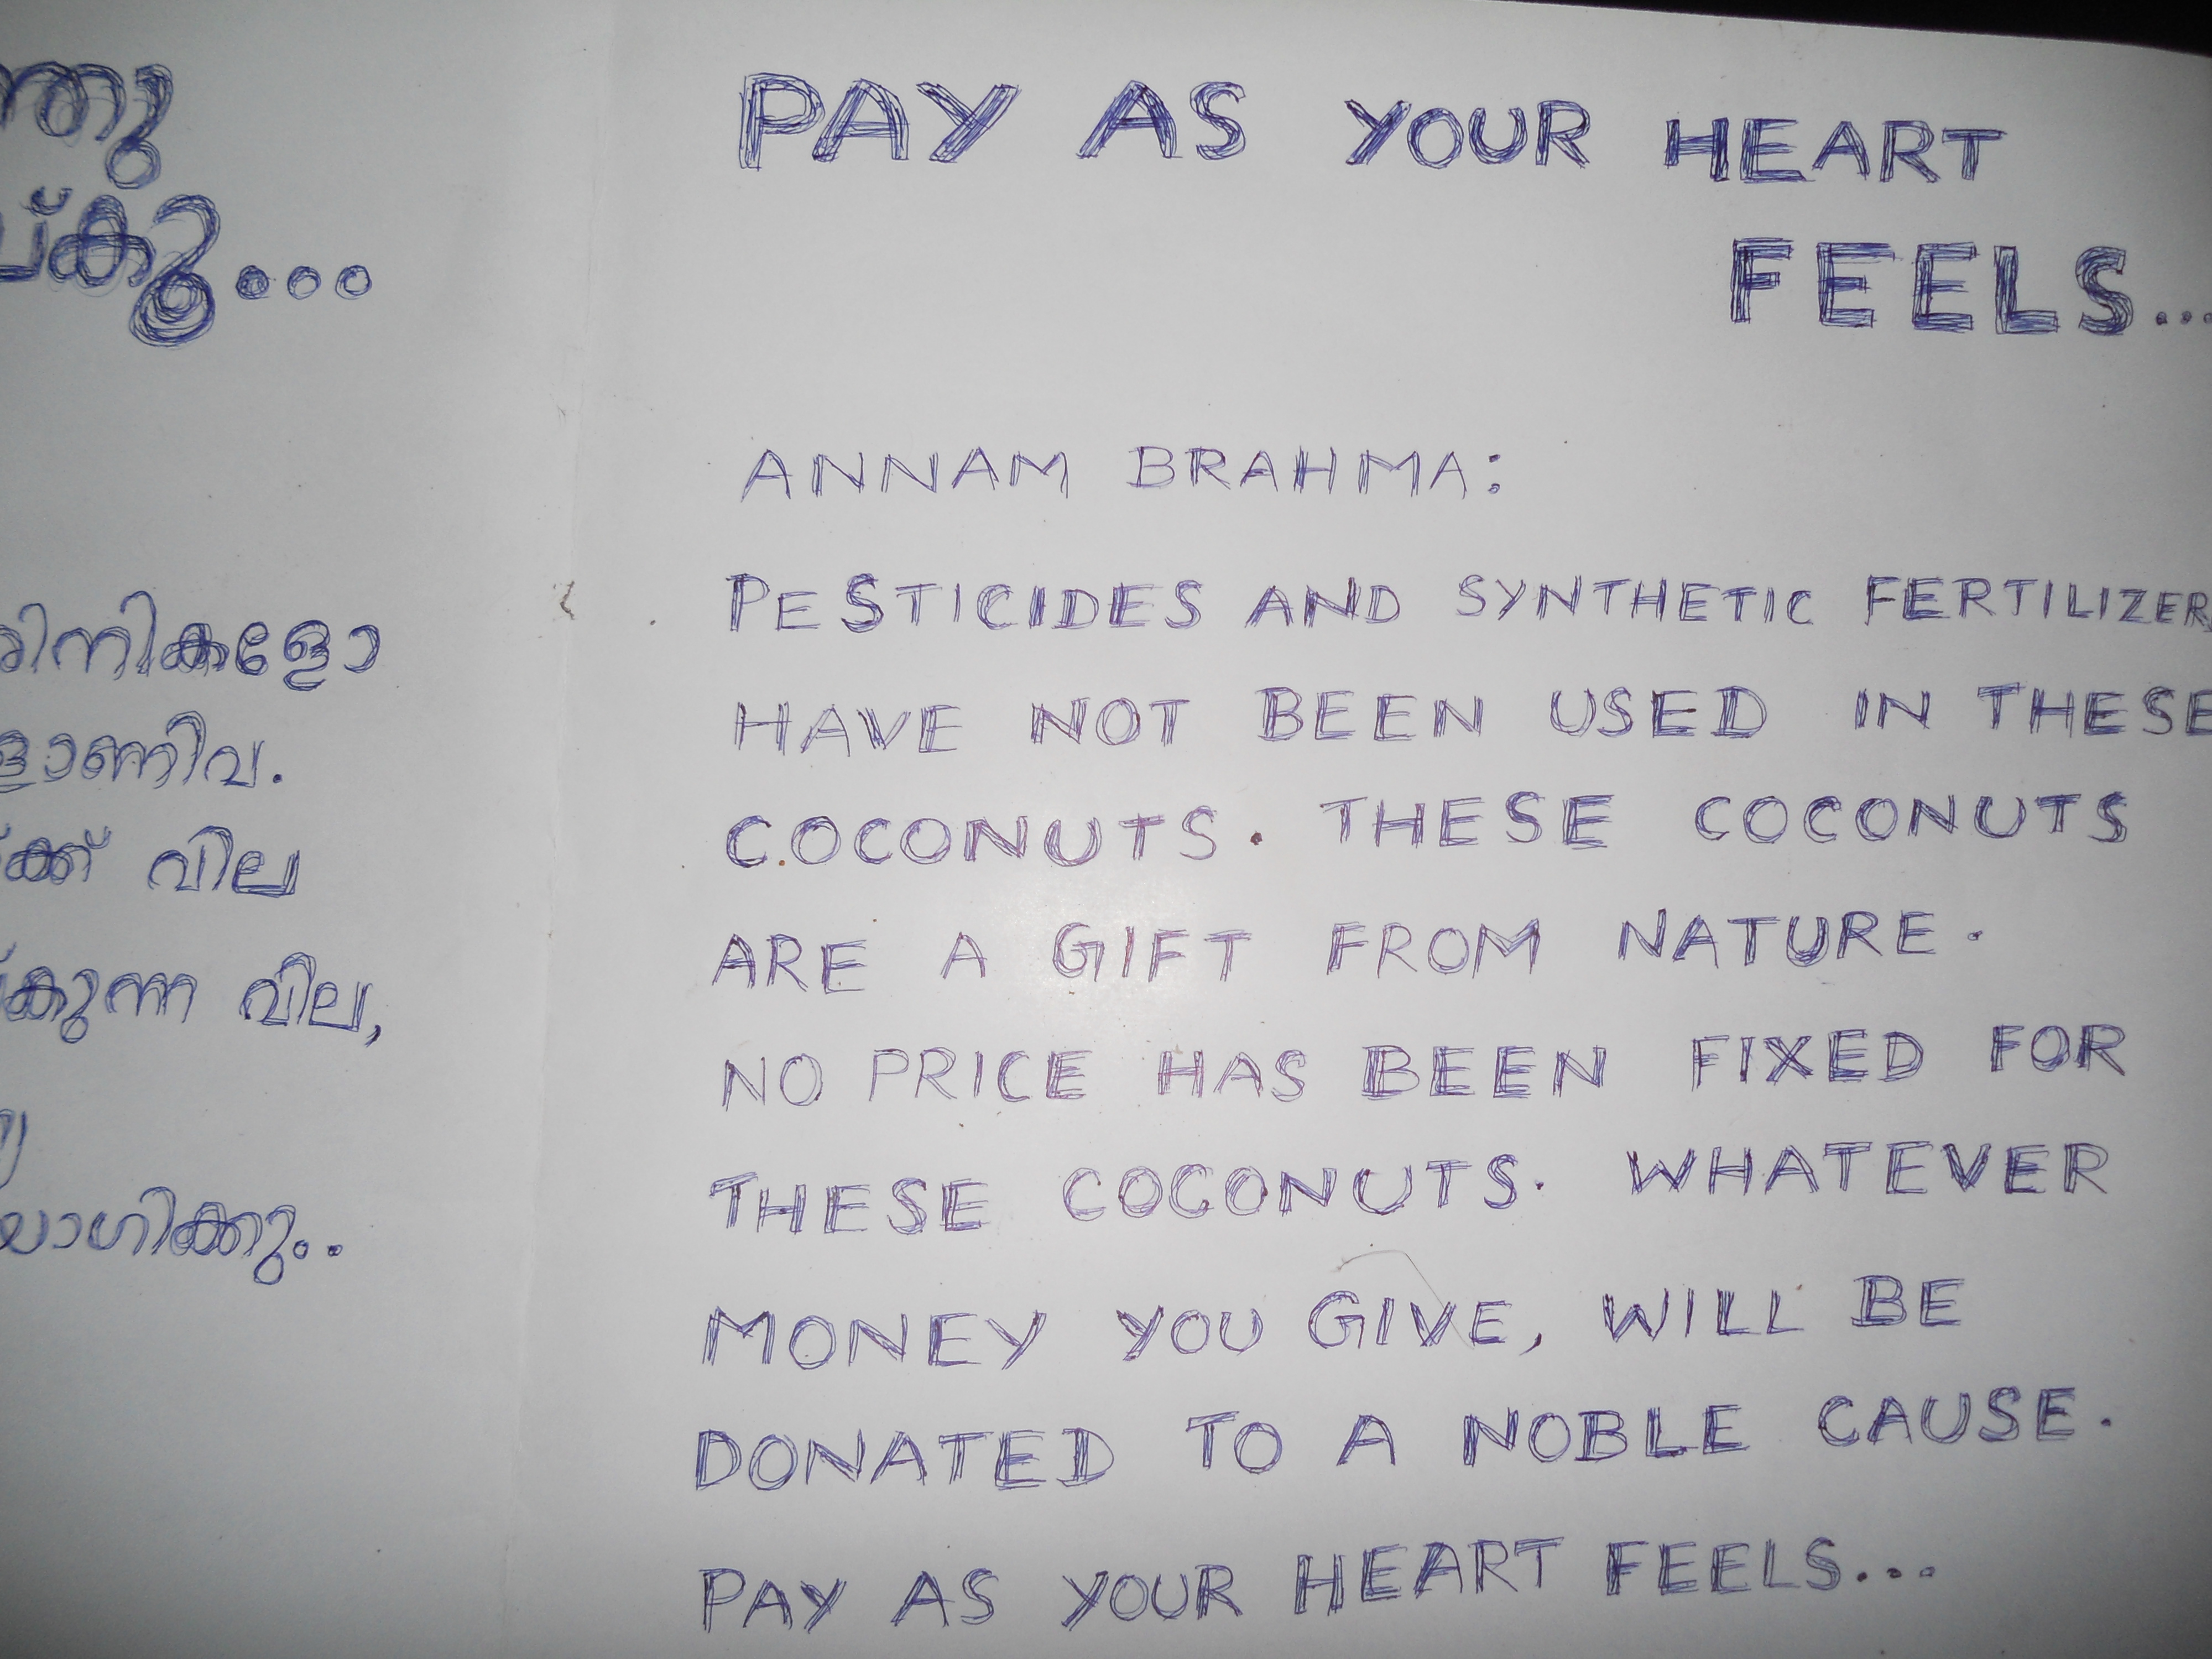 PAY AS YOUR HEART
FEELS...
ANNAM BRAHMA:
PESTICIDES AND SYNTHETIC FERTILIZER
HAVE NOT BEEN USED IN THESE
COCONUTS. THESE COCONUTS
ARE A GIFT FROM NATURE.
NO PRICE HAS BEEN FIXED FOR
THESE COCONUTS. WHATEVER
MONEY YOU GIVE, WILL BE
DONATED TO A NOBLE CAUSE.
PAY AS YOUR HEART FEELS...
വില
വില,